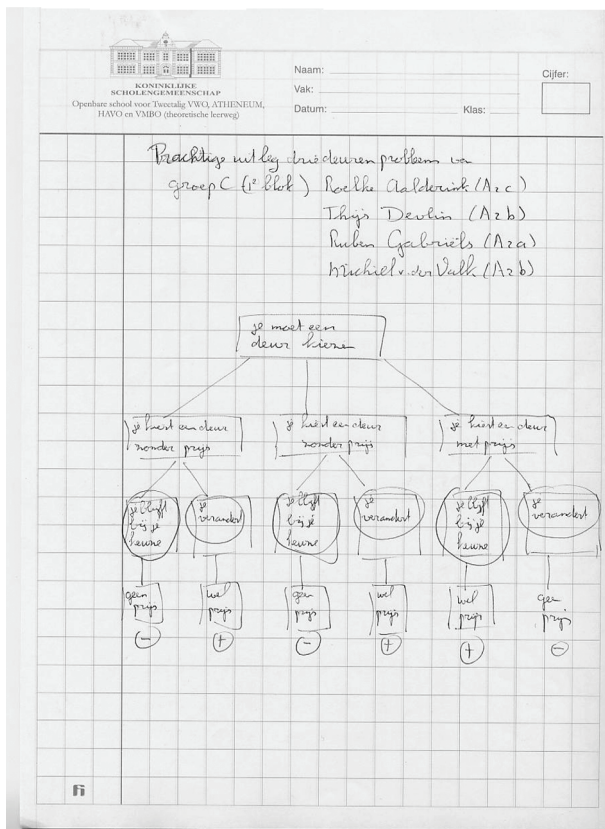 KONINKLIJKE
SCHOLENGEMEENSCHAP
Openbare school voor Tweetalig VWO, ATHENEUM,
HAVO en VMBO (theoretische leerweg)
Naam:
Vak:
Datum: Klas:
Cijfer:
Prachtige uitleg driedeuren probleem van
groep C (1e blok) Roelke Aalderink (A2c)
Thijs Devlin (A2b)
Ruben Gabriëls (A2a)
Michiel v. der Valk (A2b)
je moet een
deur kiezen
je kiest een deur
zonder prijs
je kiest een deur
zonder prijs
je kiest een deur
met prijs
je blijft
bij je
keuze
je
verandert
je blijft
bij je
keuze
je
verandert
je blijft
bij je
keuze
je
verandert
geen
prijs
wel
prijs
geen
prijs
wel
prijs
wel
prijs
geen
prijs
- + - + + -
fi